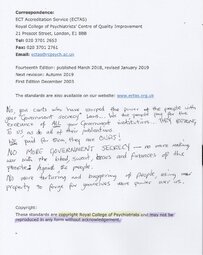 Correspondence:
ECT Accreditation Service (ECTAS)
Royal College of Psychiatrists' Centre of Quality Improvement
21 Prescot Street, London, E1 8BB
Tel: 020 3701 2653
Fax: 020 3701 2761
Email: ectas@rcpsych.ac.uk
Fourteenth Edition: published March 2018, revised January 2019
Next revision: Autumn 2019
First Edition December 2003
The standards are also available on our website: www.ectas.org.uk
No, you cunts who have usurped the power of the people with
your Government secrecy laws. We the people pay for the
existence of ALL your Government institutions. THEY BELONG
To us as do all of their publications.
We paid for them, they are OURS!
NO MORE GOVERNMENT SECRECY — no more making
war with the blood, sweat, tears and finances of the
people. Against the people.
No more torturing and buggering of people, using our
property to forge for yourselves more power over us.
Copyright:
These standards are copyright Royal College of Psychiatrists and may not be
reproduced in any form without acknowledgement.